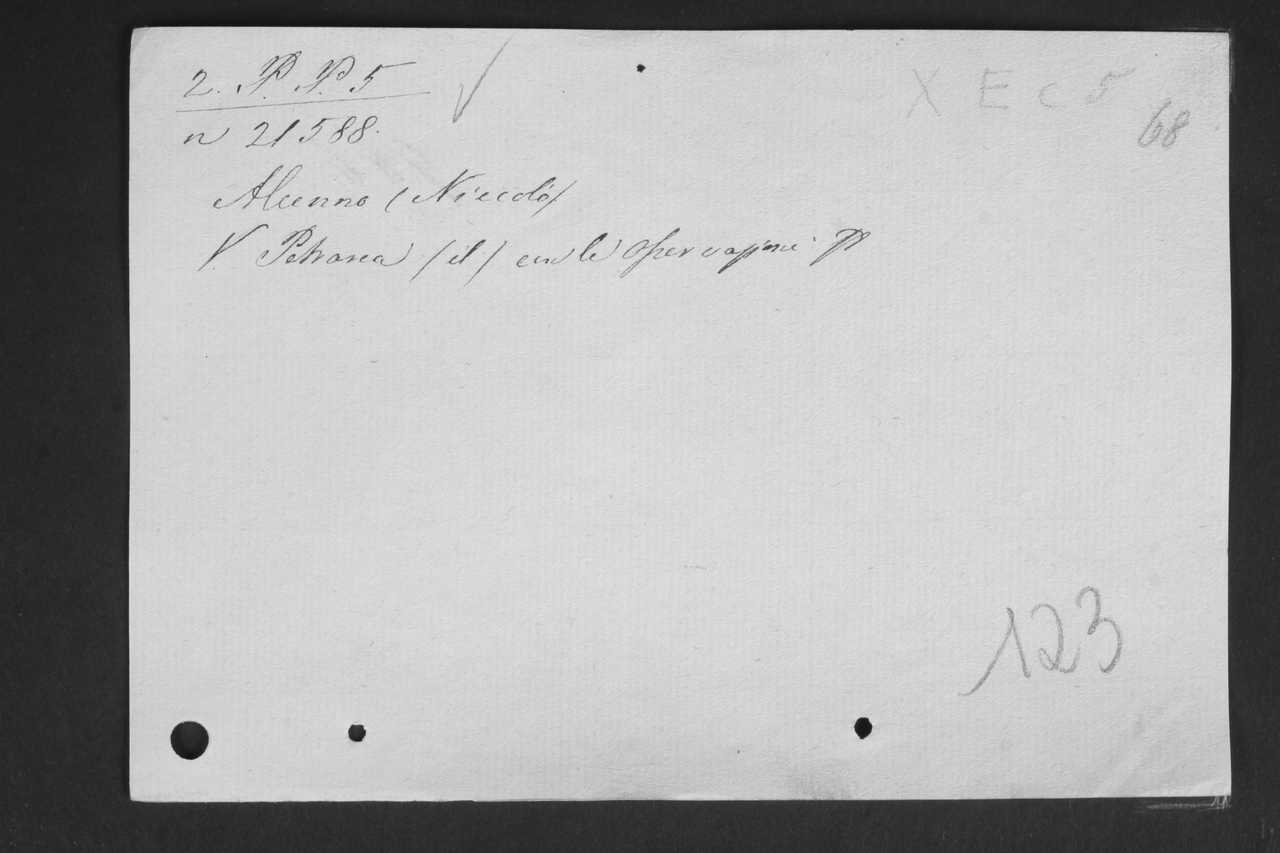 2. P. P. 5
X E C 5
68
n 21588.
Alunno (Niccolò)
V. Petrarca (il) con le Osservazioni
123